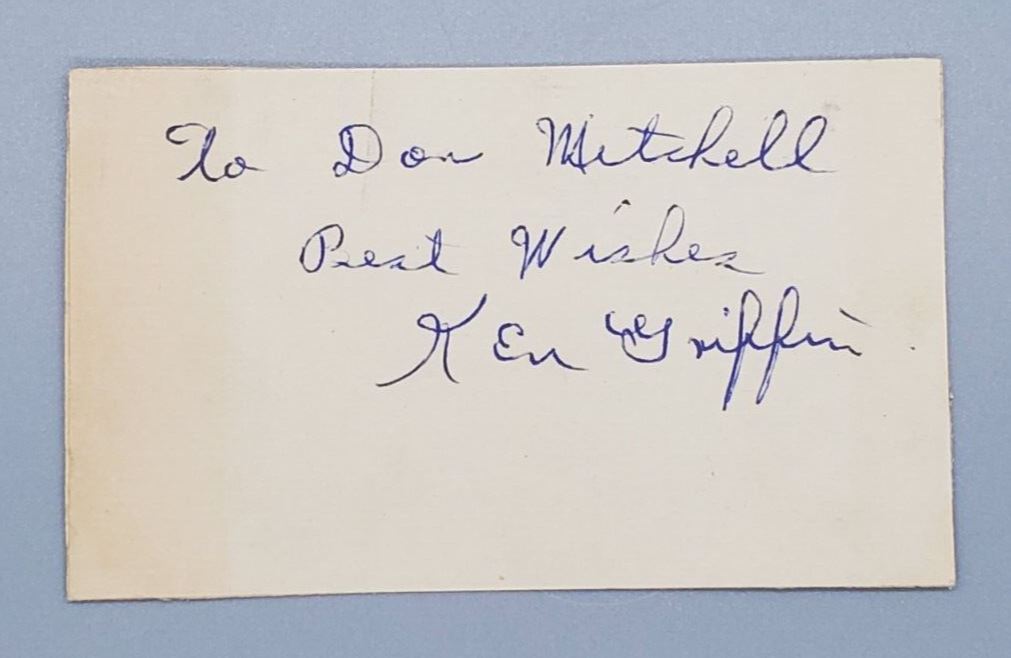 To Don Mitchell
Best Wishes
Ken Griffin